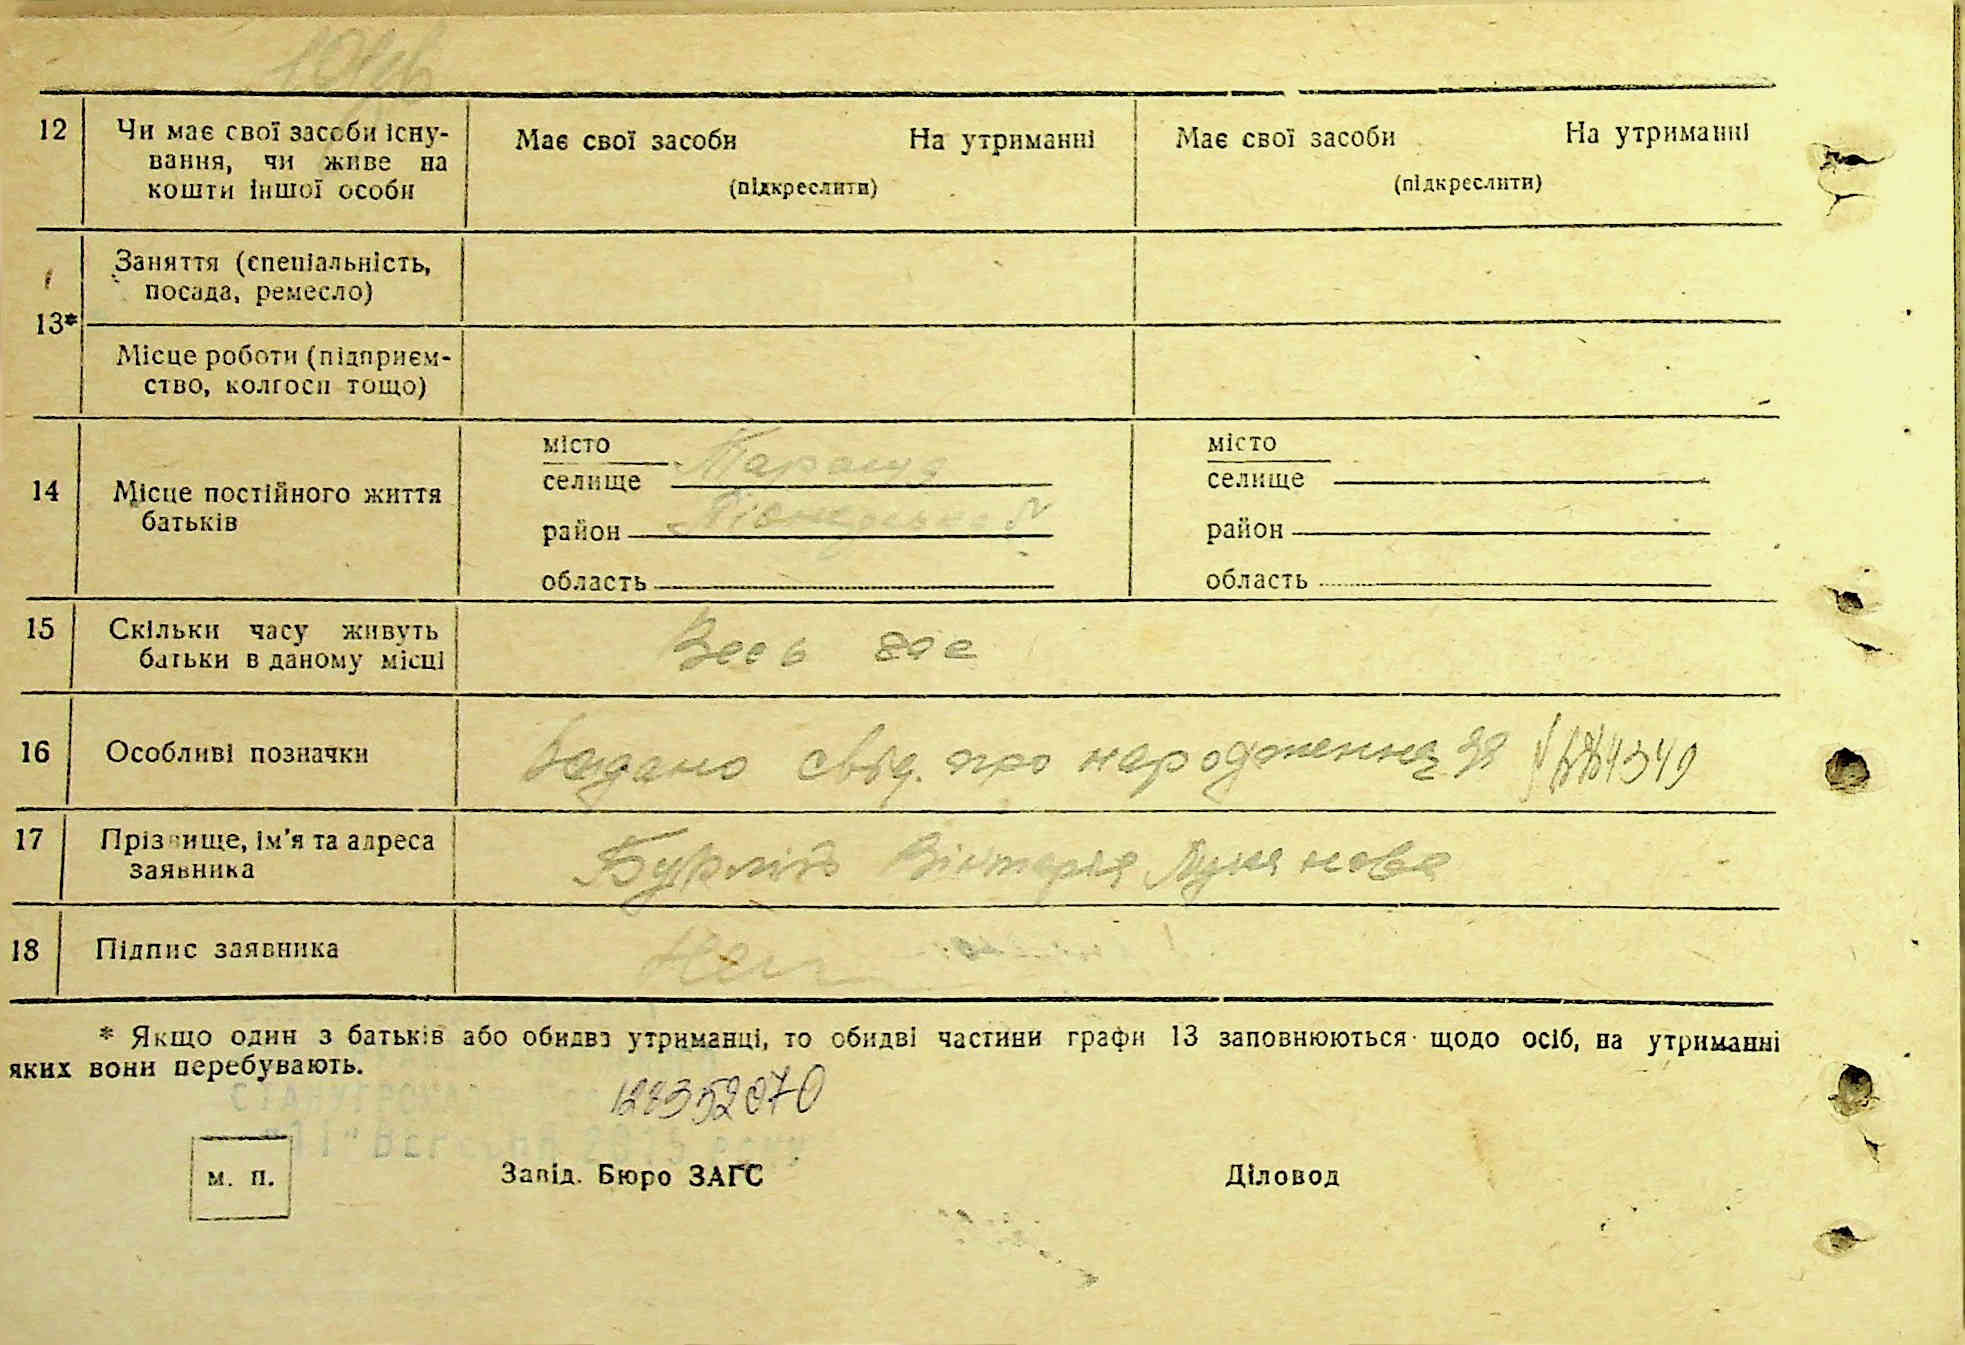 12 Чи має свої засоби існу-
вання, чи живе на
кошти іншої особи
Має свої засоби На утриманні
(підкреслити)
Має свої засоби На утриманні
(підкреслити)
13*
Заняття (спеціальність,
посада, ремесло)
Місце роботи (підприєм-
ство, колгосп тощо)
14 Місце постійного життя
батьків
місто
селище
район
область
місто
селище
район
область
15 Скільки часу живуть
батьки в даному місці
Весь час
16 Особливі позначки
Видано свід. про народження за №
17 Прізвище, ім'я та адреса
заявника
Вікторія
18 Підпис заявника
* Якщо один з батьків або обидва утриманці, то обидві частини графи 13 заповнюються щодо осіб, на утриманні
яких вони перебувають.
"11" ВЕРЕСНЯ 2015 року
м. п. Завід. Бюро ЗАГС Діловод